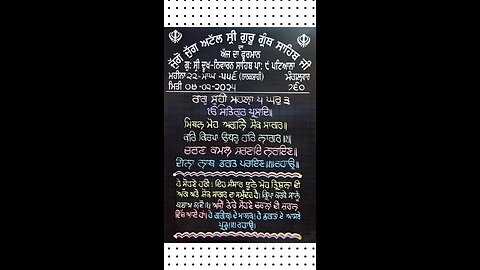 ਜੁੱਗੋ ਜੁੱਗ ਅਟੱਲ ਸ੍ਰੀ ਗੁਰੂ ਗ੍ਰੰਥ ਸਾਹਿਬ ਜੀ
ਦਾ
ਅੱਜ ਦਾ ਫੁਰਮਾਨ
ਗੁ: ਸ੍ਰੀ ਦੂਖ-ਨਿਵਾਰਨ ਸਾਹਿਬ ਪਾ: ੯ ਪਟਿਆਲਾ
ਮਹੀਨਾ ੨੨-ਮਾਘ-੫੫੬ (ਨਾਨਕਸ਼ਾਹੀ) ਮੰਗਲਵਾਰ
ਮਿਤੀ 04-02-2025 ੭੬੦
ਰਾਗੁ ਸੂਹੀ ਮਹਲਾ ੫ ਘਰੁ ੩
ੴ ਸਤਿਗੁਰ ਪ੍ਰਸਾਦਿ॥
ਮਿਥਨ ਮੋਹ ਅਗਨਿ ਸੋਕ ਸਾਗਰ॥
ਕਰਿ ਕਿਰਪਾ ਉਧਰੁ ਹਰਿ ਨਾਗਰ॥
ਚਰਣ ਕਮਲ ਸਰਣਾਇ ਨਰਾਇਣ॥
ਦੀਨਾ ਨਾਥ ਭਗਤ ਪਰਾਇਣ॥ਰਹਾਉ॥
ਹੇ ਸੋਹਣੇ ਹਰੀ! ਇਹ ਸੰਸਾਰ ਝੂਠੇ ਮੋਹ ਤ੍ਰਿਸ਼ਨਾ ਦੀ
ਅੱਗ ਅਤੇ ਸੋਕ ਸਾਗਰ ਦਾ ਸਮੁੰਦਰ ਹੈ। ਕ੍ਰਿਪਾ ਕਰਕੇ ਸਾਨੂੰ
ਅਸੀਂ ਤੇਰੇ ਸੋਹਣੇ ਚਰਨਾਂ ਦੀ ਸਰਨ
ਵਿੱਚ ਆਏ ਹਾਂ। ਹੇ ਗਰੀਬਾਂ ਦੇ ਮਾਲਕ! ਹੇ ਭਗਤਾਂ ਦੇ ਆਸਰੇ
ਪ੍ਰਭੂ!॥ਰਹਾਉ॥